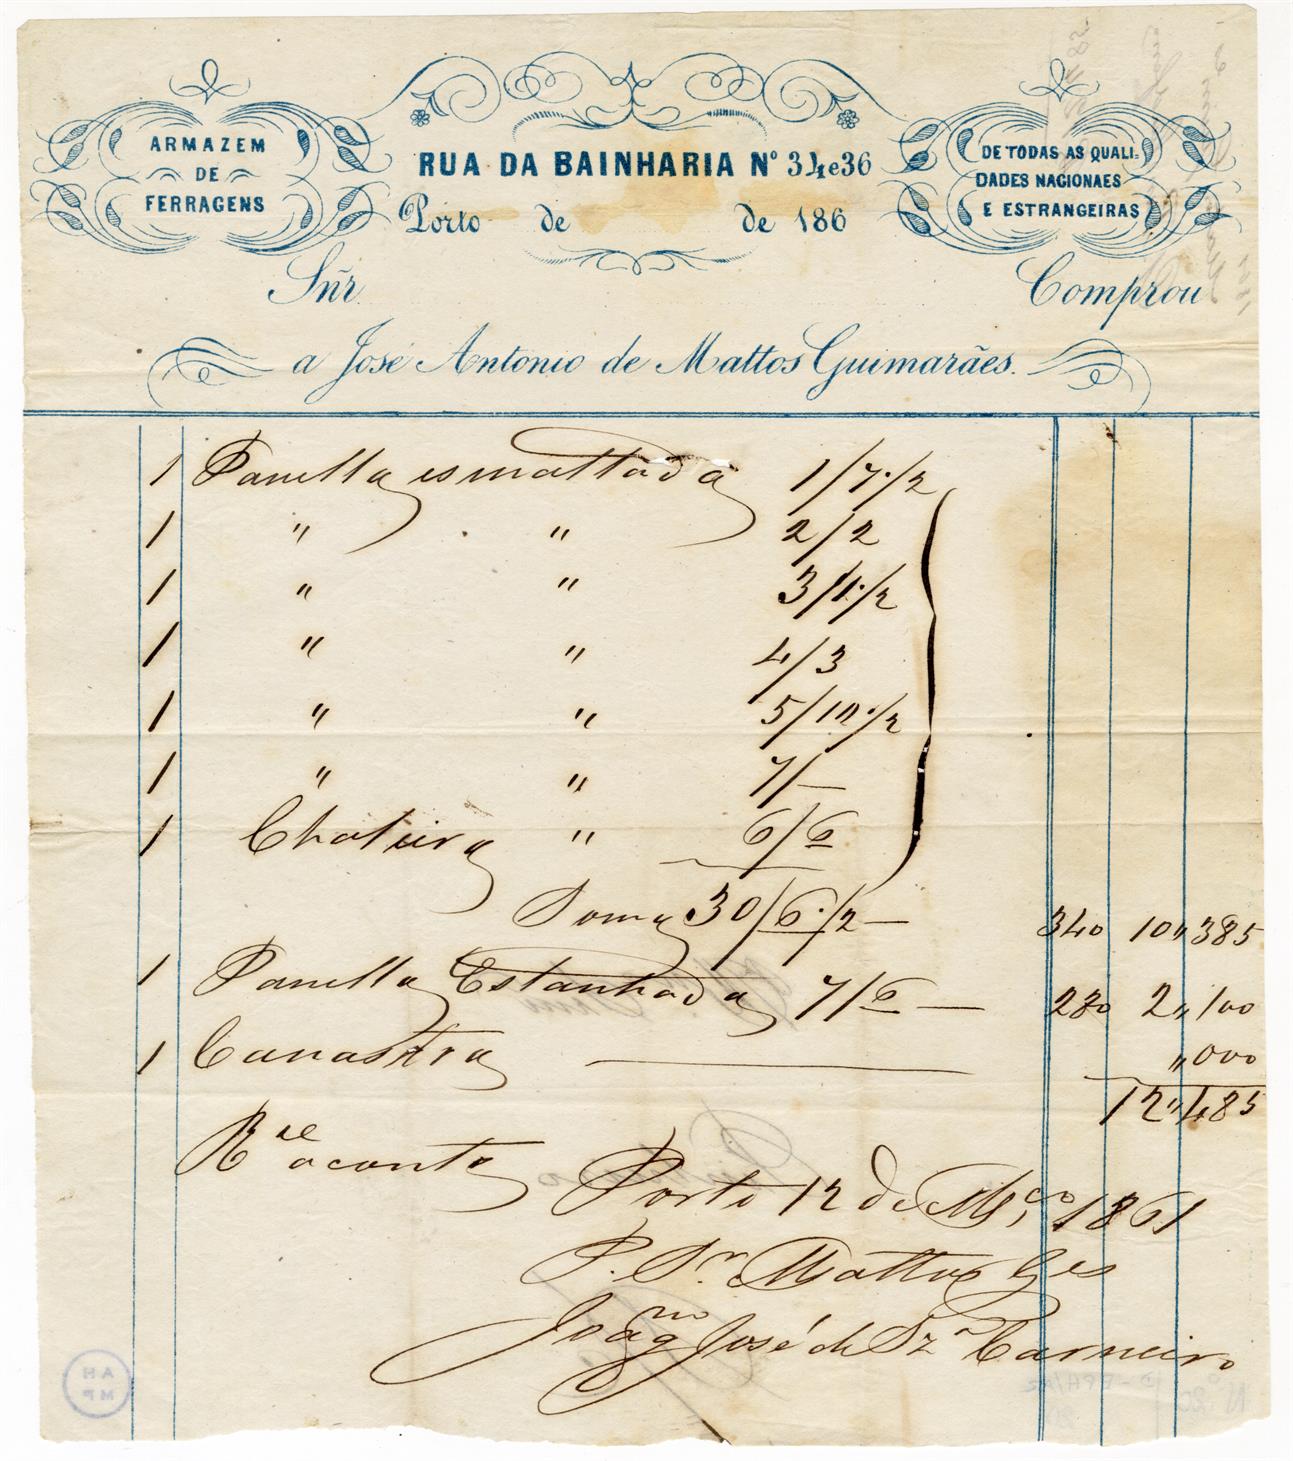 ARMAZEM
DE
FERRAGENS
RUA DA BAINHARIA Nº 34 e 36
Porto de de 186
DE TODAS AS QUALI-
DADES NACIONAES
E ESTRANGEIRAS
Sñr. Comprou
a José Antonio de Mattos Guimarães.
1 Panella esmaltada 1/7·/2
1 " " 2/2
1 " " 3/11·/2
1 " " 4/3
1 " " 5/10·/2
1 " " 7/—
1 Chaleira " 6/6
Soma 30/6·/2 — 340 10„385
1 Panella Estanhada 7/6 — 280 2„100
1 Canastra — „000
12„485
R.ce a conta
Porto 12 de M.ço 1861
P. Sr. Mattos Ges
Joaqm José de Sza Carneiro
AH
MP